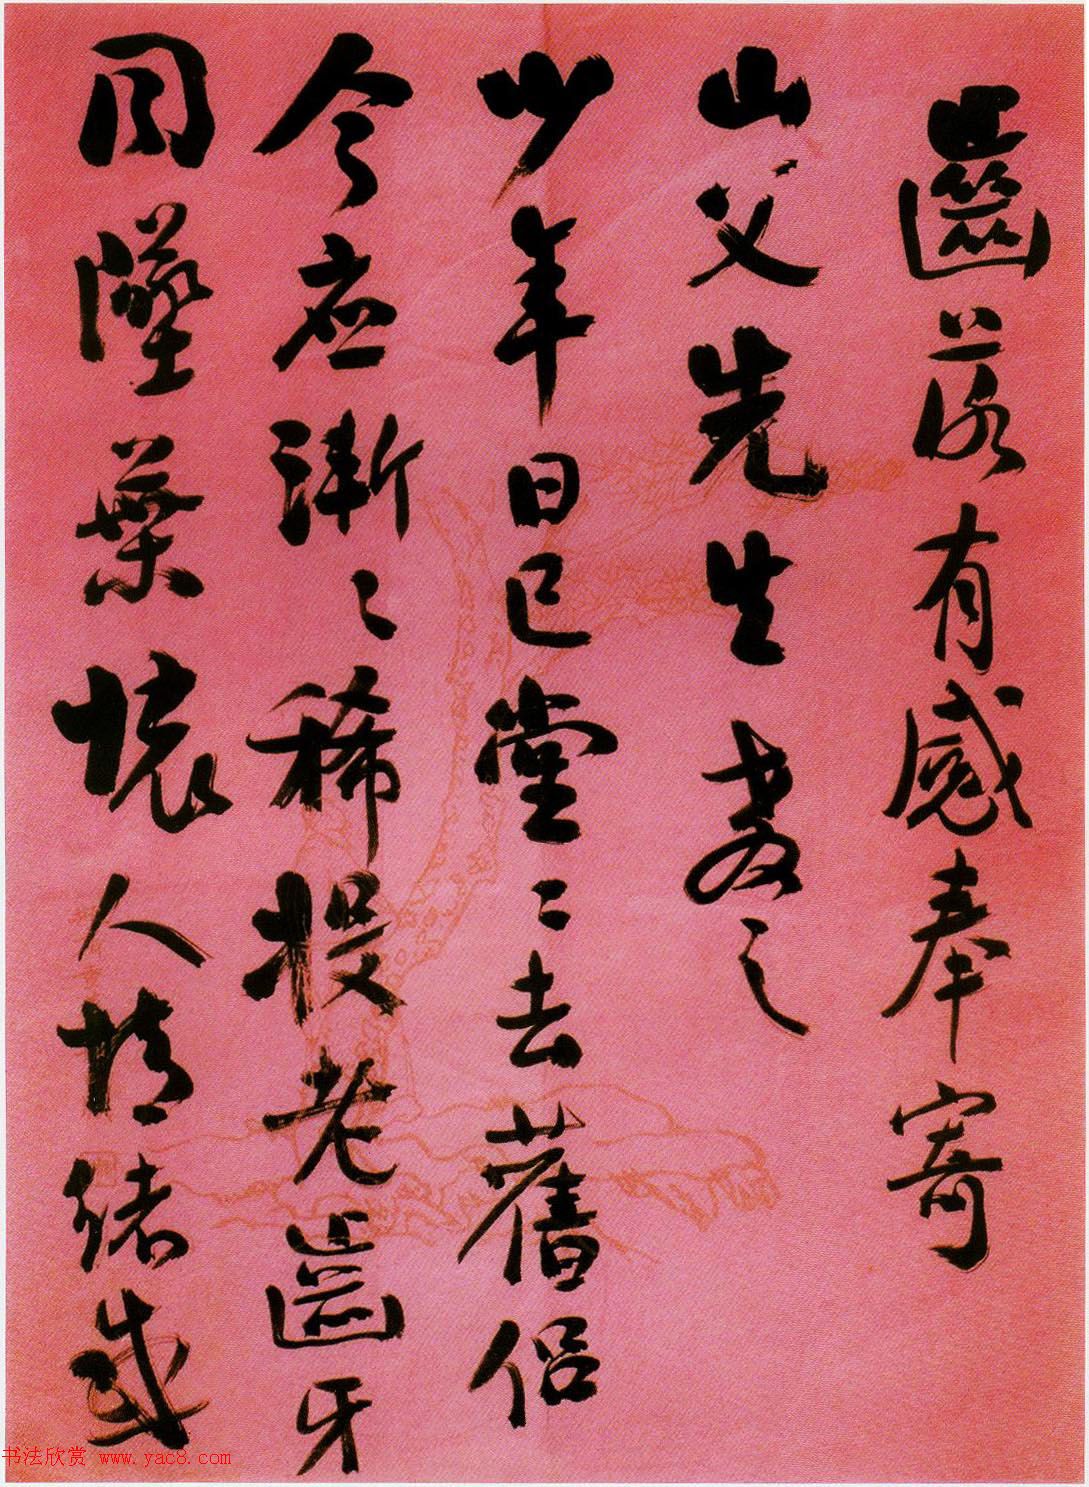 齒落有感奉寄
山父先生教之
少年日已堂〻去舊侣
今应漸〻稀投老齒牙
同墜葉懷人情緒或
书法欣赏 www.yac8.com